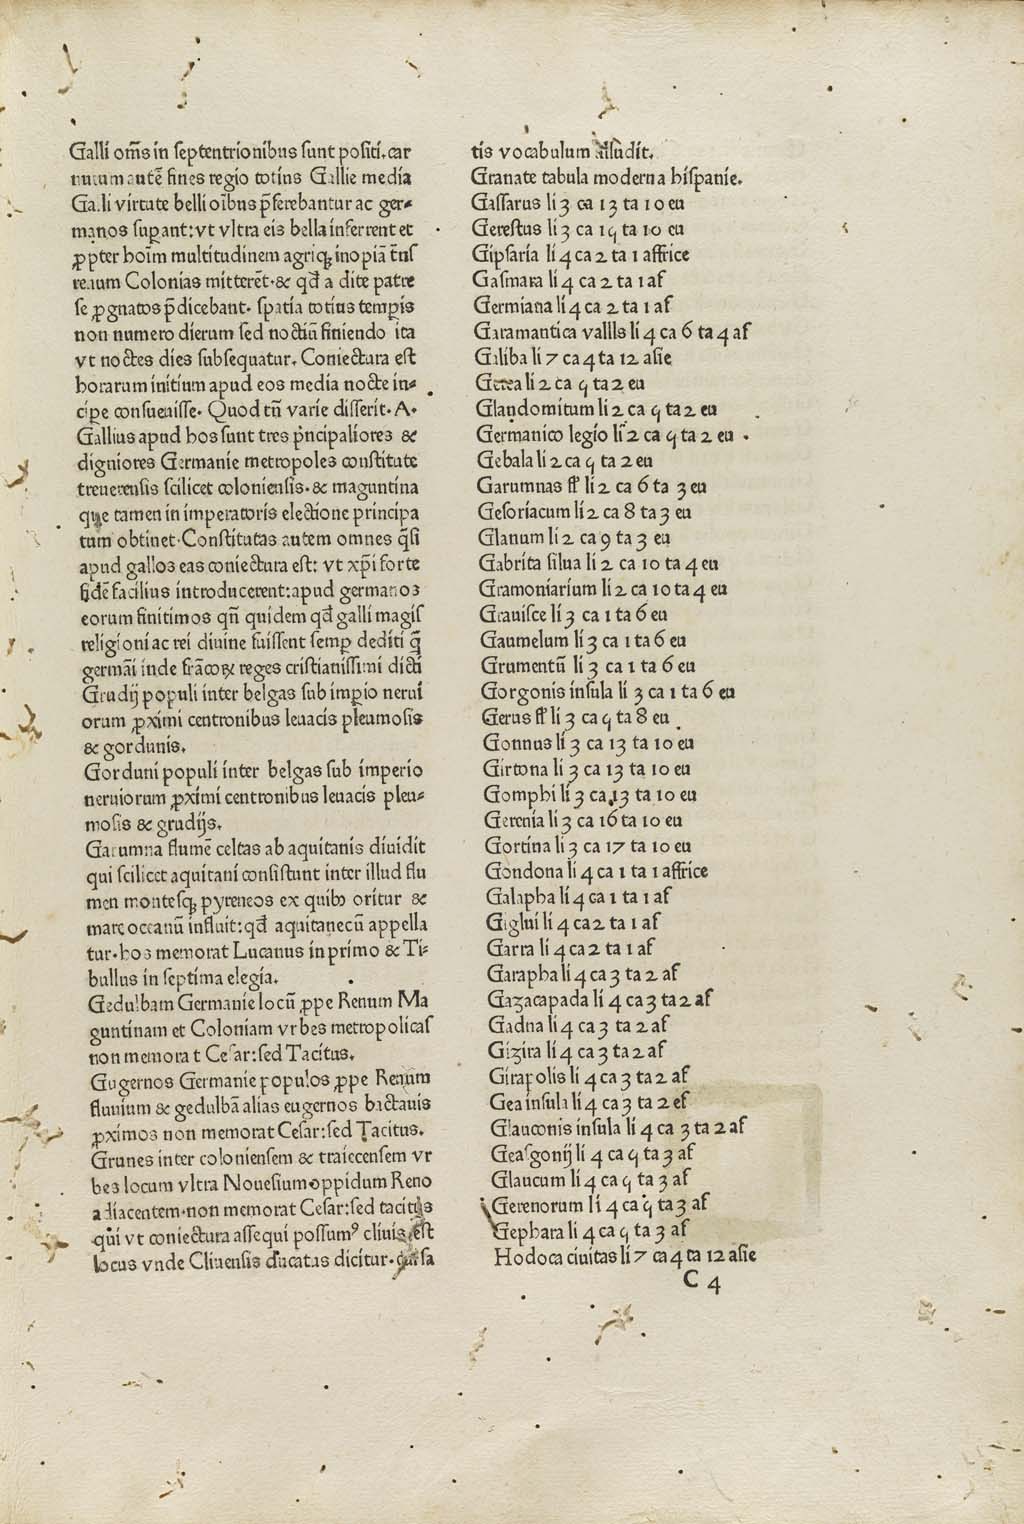 Galli om̄s in septentrionibus sunt positi.car
nutum autē fines regio totius Gallie media
Galli virtute belli oībus p̄ferebantur ac ger-
manos suꝑant:vt vltra eis bella inferrent et
ꝓpter hoīm multitudinem agriqꝫ inopiā trās
renum Colonias mitterēt.& qđ a dite patre
se ꝓgnatos p̄dicebant. spatia totius tempis
non numero dierum sed noctiū finiendo ita
vt noctes dies subsequatur. Coniectura est
horarum initium apud eos media nocte in-
cipe consueuisse. Quod tn̄ varie disserit. A.
Gallius apud hos sunt tres p̄ncipaliores &
digniores Germanie metropoles constitute
treuerensis scilicet coloniensis.& maguntina
que tamen in imperatoris electione principa
tum obtinet.Constitutas autem omnes q̄si
apud gallos eas coniectura est: vt xp̄i forte
fidē facilius introducerent:apud germanos
eorum finitimos qn̄ quidem qđ galli magis
religioni ac rei diuine fuissent semꝑ dediti q̄
germāi inde frācoꝝ reges cristianissimi dicti
Grudij populi inter belgas sub imꝑio nerui
orum ꝓximi centronibus leuacis pleumosis
& gordunis.
Gorduni populi inter belgas sub imperio
neruiorum ꝓximi centronibus leuacis pleu-
mosis & grudijs.
Garumna flumē celtas ab aquitanis diuidit
qui scilicet aquitani consistunt inter illud flu
men montesqꝫ pyreneos ex quibꝰ oritur &
mare occanū influit:qđ aquitanecū appella
tur.hos memorat Lucanus in primo & Ti-
bullus in septima elegia.
Gedulbam Germanie locū ꝓpe Renum Ma
guntinam et Coloniam vrbes metropolicas
non memorat Cesar:sed Tacitus.
Gugernos Germanie populos ꝓpe Renum
fluuium & gedulbā alias eugernos bactauis
ꝓximos non memorat Cesar:sed Tacitus.
Grunes inter coloniensem & traiecensem vr
bes locum vltra Nouesium oppidum Reno
adiacentem.non memorat Cesar:sed tacitus
qui vt coniectura assequi possumꝰ cliuis est
locus vnde Cliuensis ducatus dicitur.
tis vocabulum
Granate tabula moderna hispanie.
Gassarus li 3 ca 13 ta 10 eu
Gerestus li 3 ca 15 ta 10 eu
Gipsaria li 4 ca 2 ta 1 affrice
Gasmara li 4 ca 2 ta 1 af
Germiana li 4 ca 2 ta 1 af
Garamantica vallls li 4 ca 6 ta 4 af
Galiba li 7 ca 4 ta 12 asie
li 2 ca 5 ta 2 eu
Glandomitum li 2 ca 5 ta 2 eu
Germanico legio li 2 ca 5 ta 2 eu
Gebala li 2 ca 5 ta 2 eu
Garumnas fl' li 2 ca 6 ta 3 eu
Gesoriacum li 2 ca 8 ta 3 eu
Glanum li 2 ca 9 ta 3 eu
Gabrita silua li 2 ca 10 ta 4 eu
Gramoniarium li 2 ca 10 ta 4 eu
Grauisce li 3 ca 1 ta 6 eu
Gaumelum li 3 ca 1 ta 6 eu
Grumentū li 3 ca 1 ta 6 eu
Gorgonis insula li 3 ca 1 ta 6 eu
Gerus fl' li 3 ca 5 ta 8 eu
Gonnus li 3 ca 13 ta 10 eu
Girtona li 3 ca 13 ta 10 eu
Gomphi li 3 ca 13 ta 10 eu
Gerenia li 3 ca 16 ta 10 eu
Gortina li 3 ca 17 ta 10 eu
Gondona li 4 ca 1 ta 1 affrice
Galapha li 4 ca 1 ta 1 af
Giglui li 4 ca 2 ta 1 af
Garra li 4 ca 2 ta 1 af
Garapha li 4 ca 3 ta 2 af
Gazacapada li 4 ca 3 ta 2 af
Gadna li 4 ca 3 ta 2 af
Gizira li 4 ca 3 ta 2 af
Girapolis li 4 ca 3 ta 2 af
Gea insula li 4 ca 3 ta 2 ef
Glauconis insula li 4 ca 3 ta 2 af
Geasgonij li 4 ca 5 ta 3 af
Glaucum li 4 ca 5 ta 3 af
Gerenorum li 4 ca 5 ta 3 af
Gephara li 4 ca 5 ta 3 af
Hodoca ciuitas li 7 ca 4 ta 12 asie
C 4